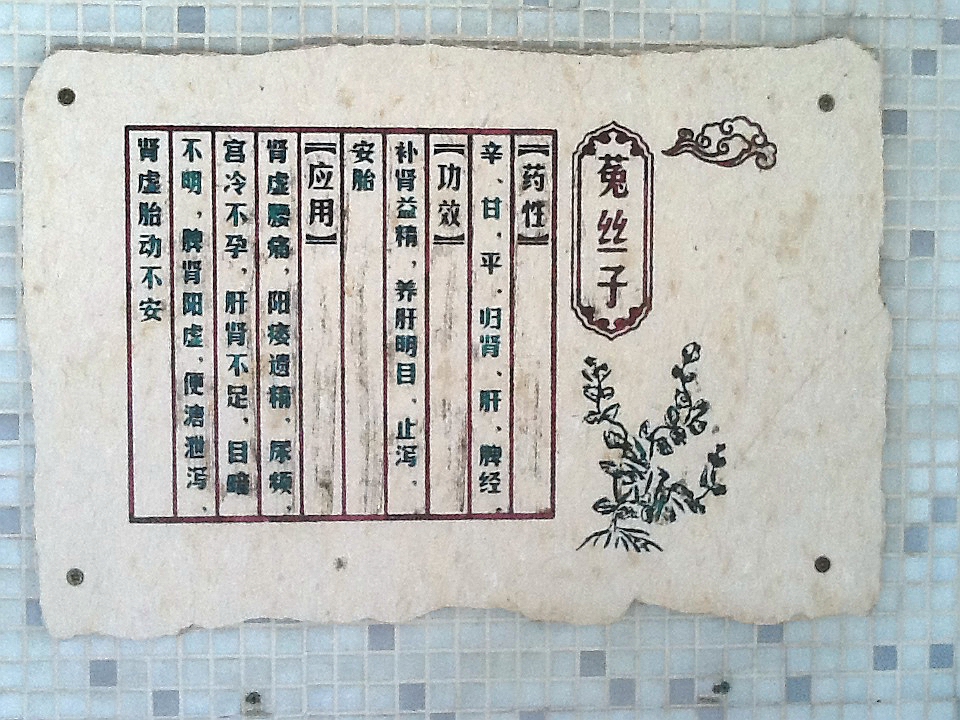 菟丝子
【药性】
辛、甘,平.归肾、肝、脾经.
【功效】
补肾益精,养肝明目、止泻,
安胎
【应用】
肾虚腰痛,阳痿遗精,尿频,
宫冷不孕,肝肾不足,目暗
不明,脾肾阳虚.便溏泄泻.
肾虚胎动不安